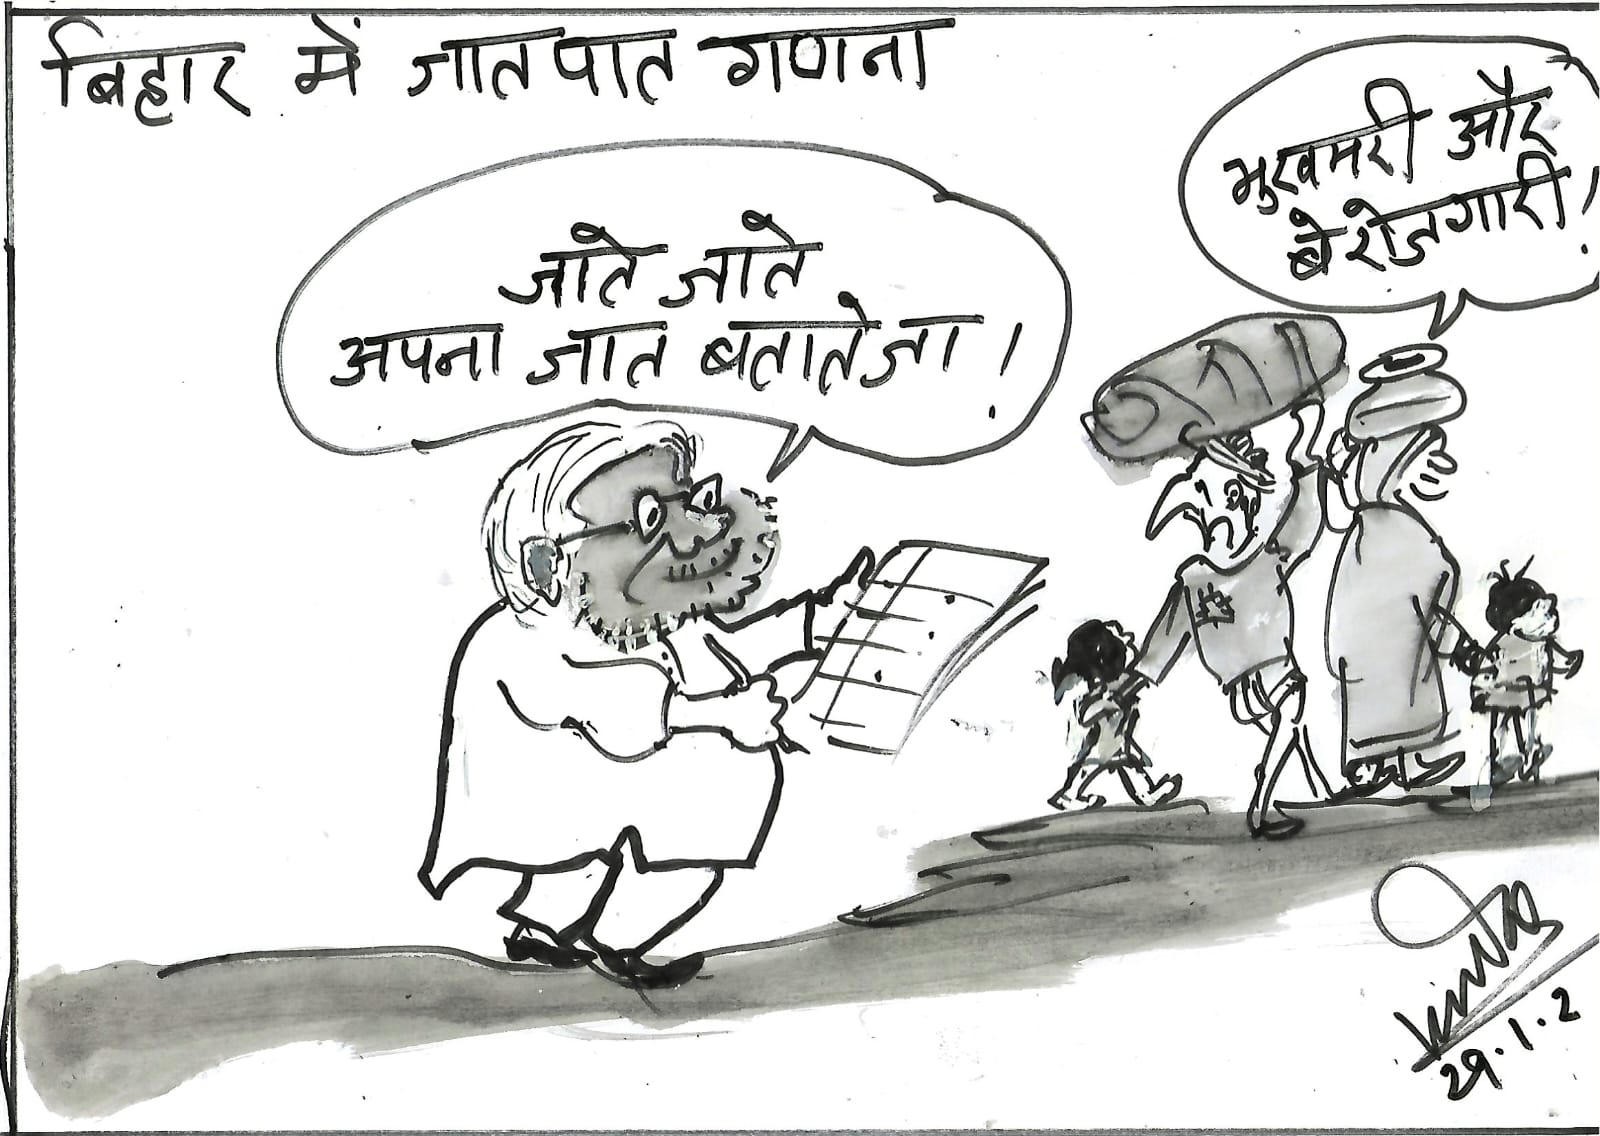 बिहार में जातपात गणना
जाते जाते
अपना जात बताते जा!
भुखमरी और
बेरोजगारी!
29.1.2